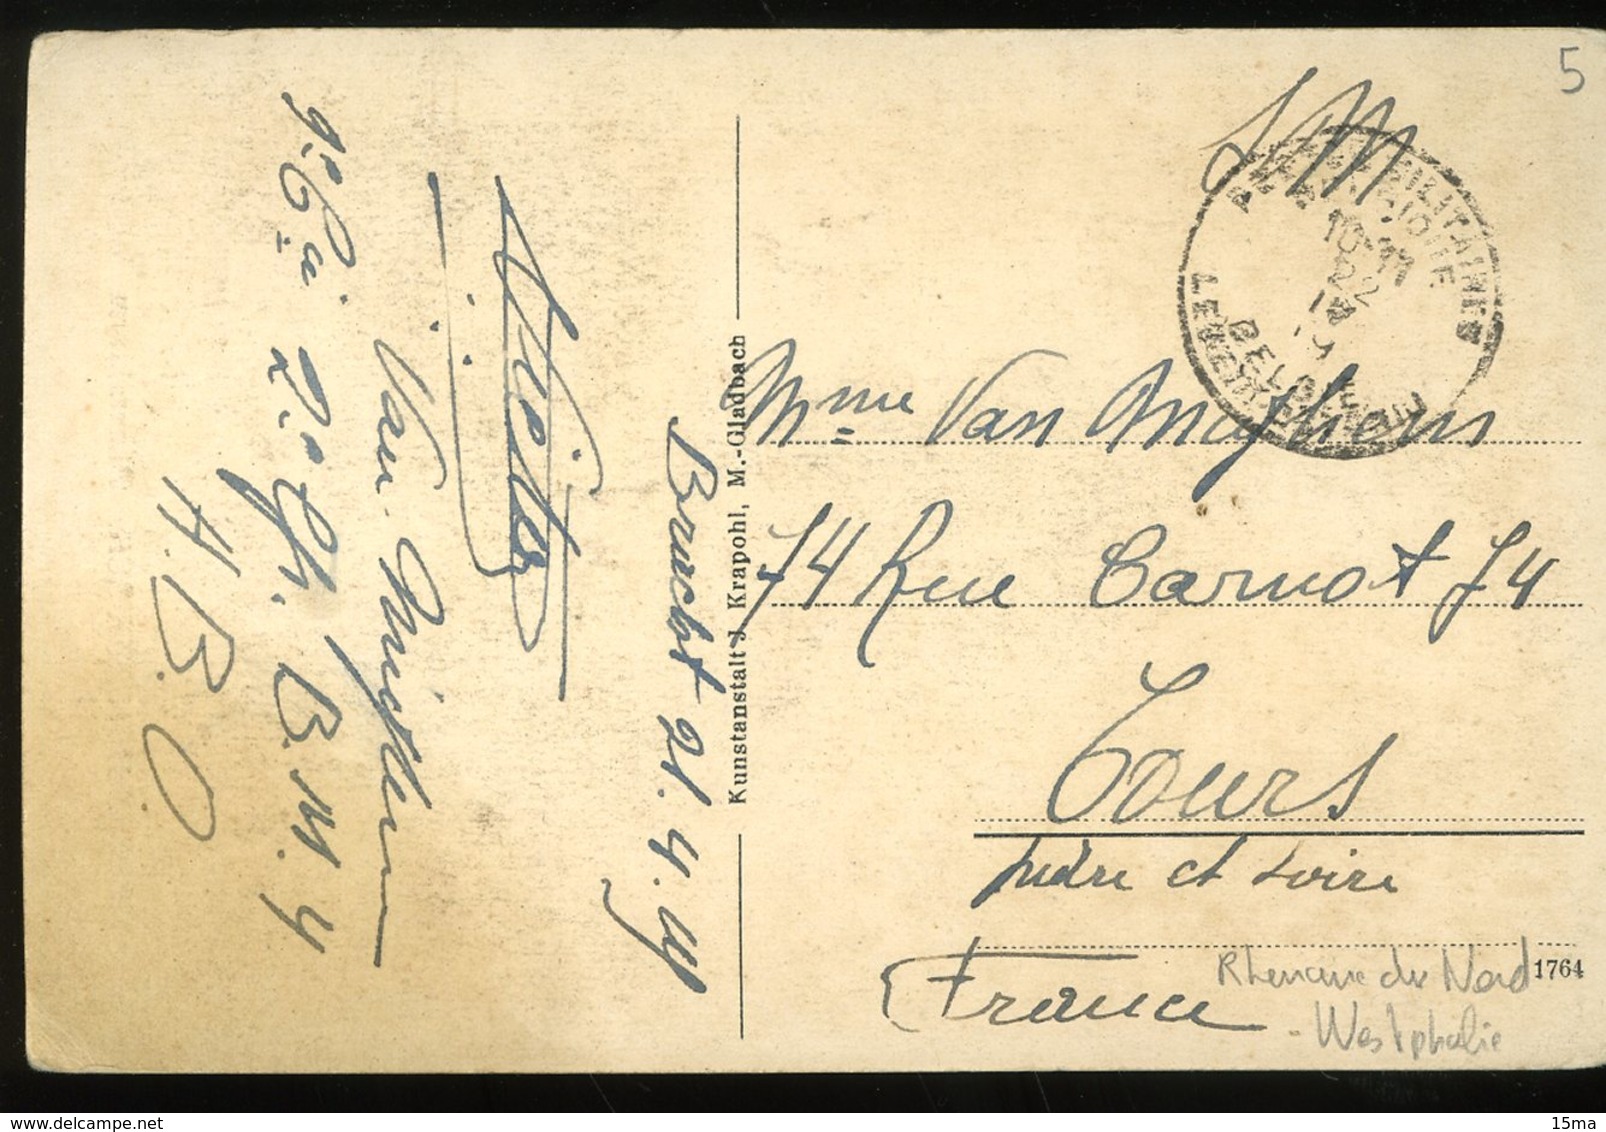 5
S.M
POSTES MILITAIRES
BELGIQUE
10-11
22
IV
19
BELGIE
LEGERPOSTERIJ
Mme Van Muysers
74 Rue Carnot 74
Tours
Indre et Loire
France
1764
Rhenanie du Nord
- Westphalie
Kunstanstalt J. Krapohl, M.-Gladbach
Bracht 21.4.19
Victor
Van
9e Cie
2e Ch. B.M. 4
A.B.O.
15ma